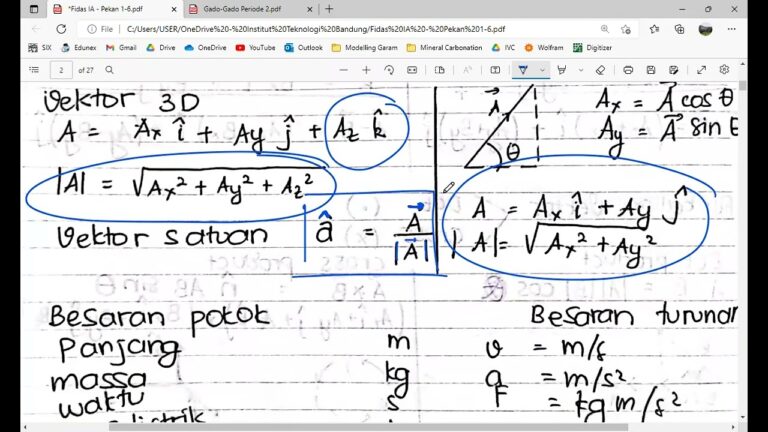 *Fidas IA - Pekan 1-6.pdf
Gado-Gado Periode 2.pdf
File
C:/Users/USER/OneDrive%20-%20Institut%20Teknologi%20Bandung/Fidas%20IA%20-%20Pekan%201-6.pdf
SIX Edunex Gmail Drive OneDrive YouTube Outlook Modelling Garam Mineral Carbonation IVC Wolfram Digitizer
2 of 27
Vektor 3D
A = Ax î + Ay ĵ + Az k̂
|A| = √Ax² + Ay² + Az²
Vektor satuan
â = A⃗ / |A⃗|
A⃗
θ
Ax = A⃗ cos θ
Ay = A⃗ sin θ
A = Ax î + Ay ĵ
|A| = √Ax² + Ay²
Besaran pokok
Panjang m
massa kg
waktu s
listrik
Besaran turunan
v = m/s
a = m/s²
F = kg m/s²